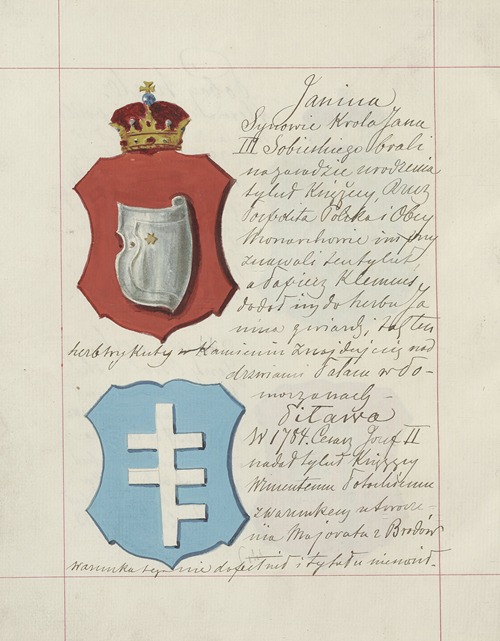 Janina
Synowie Krola Jana
III Sobieskiego brali
na zasadzie urodzenia
tytuł Książęcy, Rzecz
Pospolita Polska i Obcy
Monarchowie im przy
znawali ten tytuł,
a Papierz Klemens,
dodał im do herbu Ja
nina gwiazdę, taż ten
herb wykuty w Kamieniu znajduje się nad
drzwiami Pałacu w Po-
morzanach -
Pilawa
W 1784. Cesarz Józef II
nadał tytuł Książęcy
Wincentemu Potockiemu
z warunkiem utworze-
nia Majoratu z Brodów
warunku tego nie dopełnił i tytułu nie